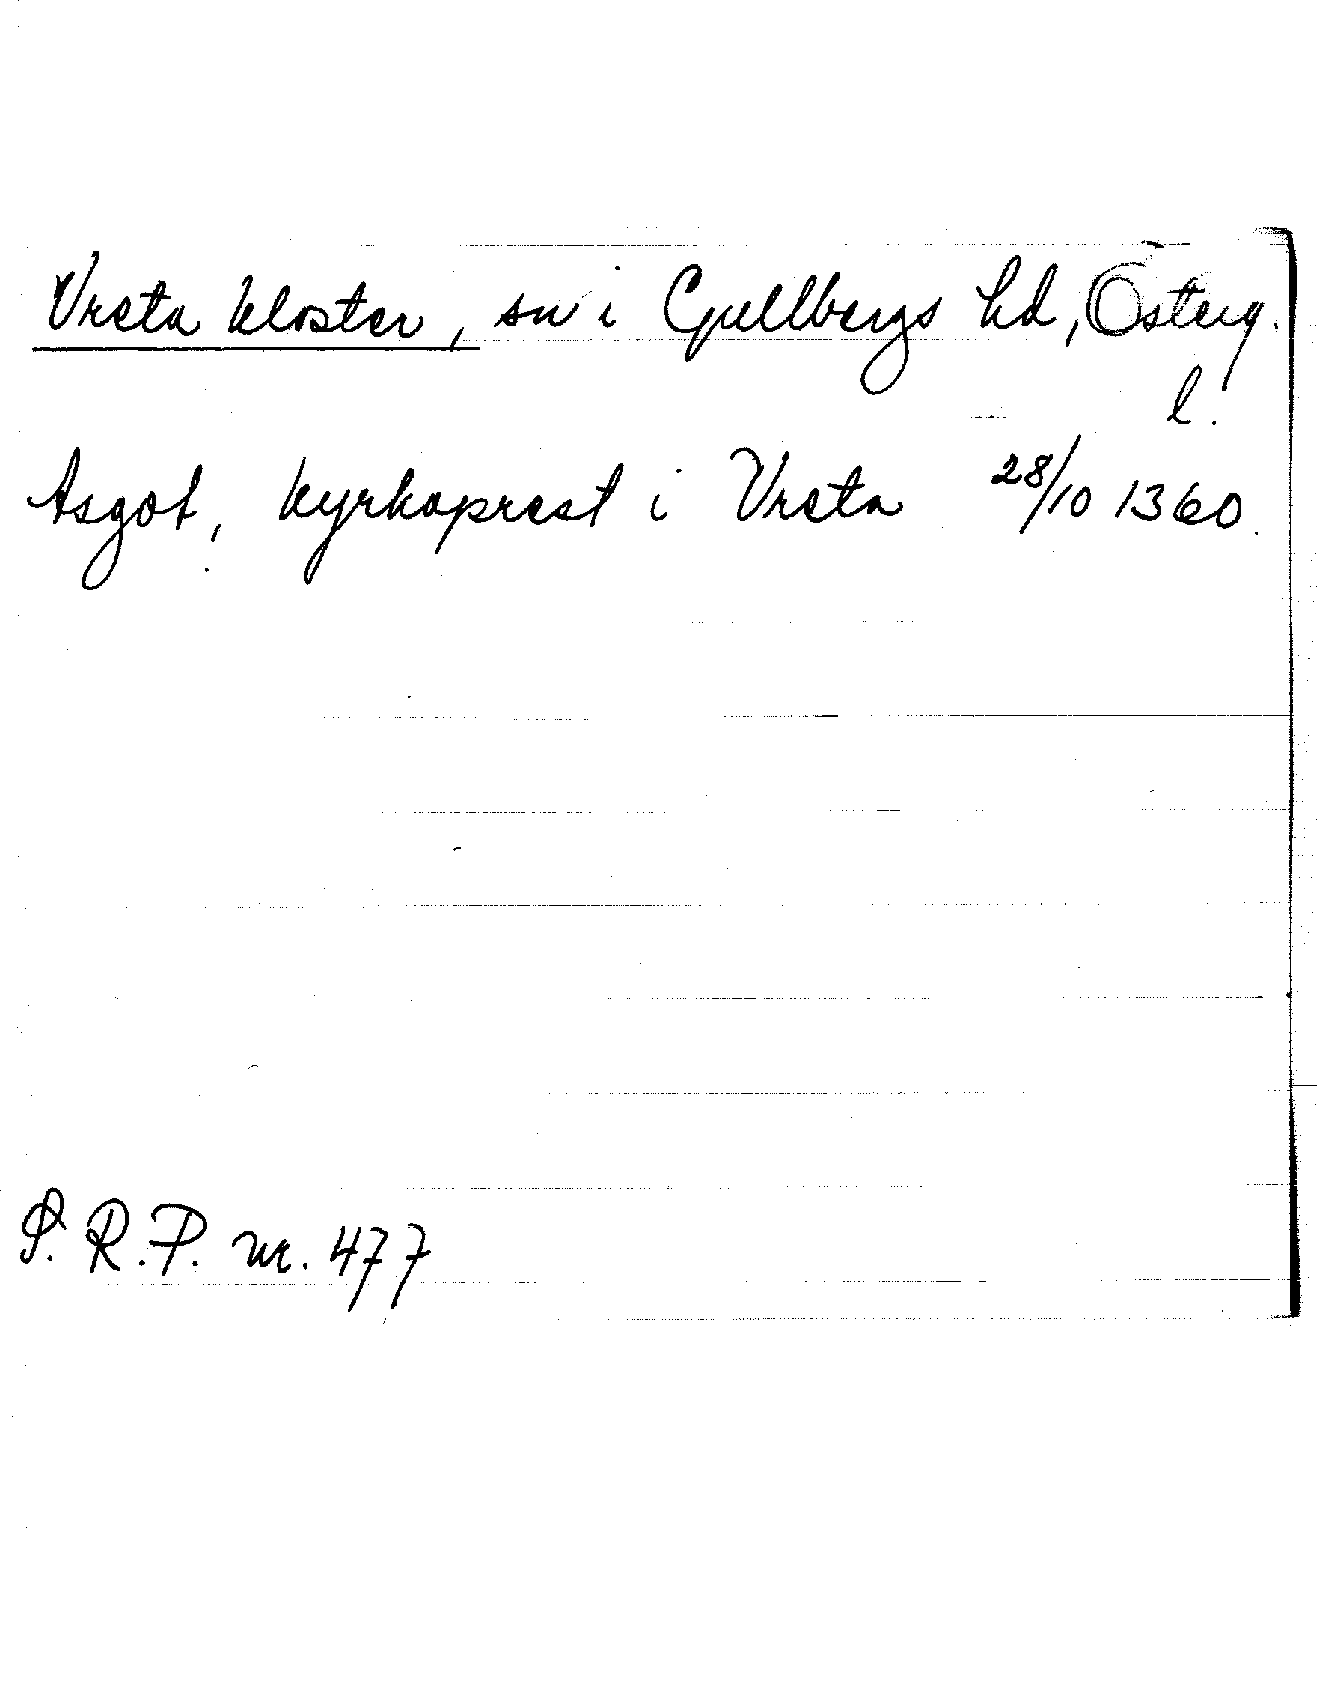 Vreta kloster, sn i Gullbergs hd, Österg.
l.
Asgot, kyrkoprest i Vreta 28/10 1360.
S. R. P. nr. 477